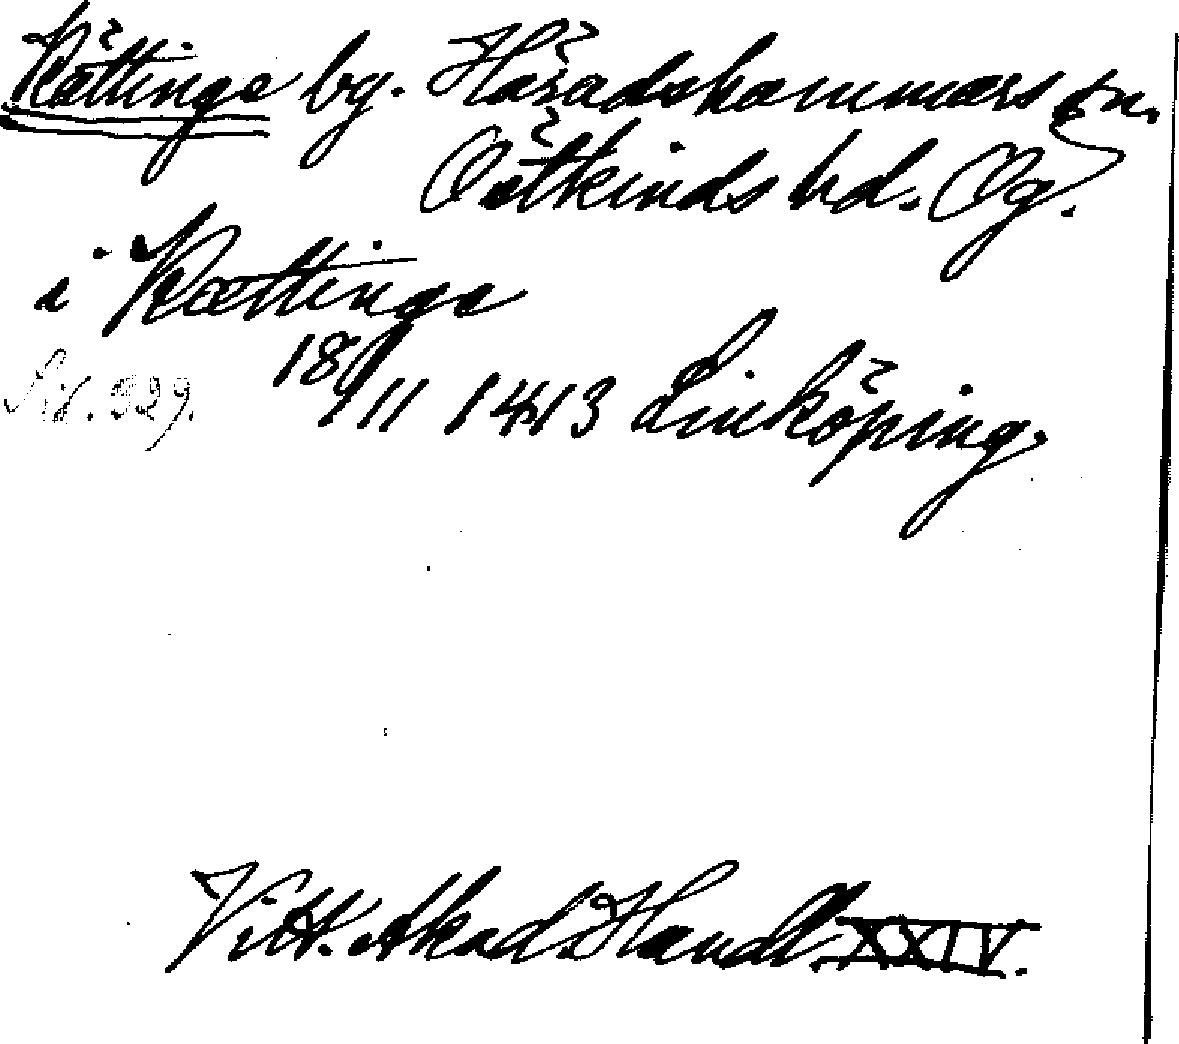 Kättinge by. Häradshammars sn.
Östkinds hd. Ög.
i Kættinge
Sid. 329. 18/11 1413 Linköping.
Vitt. Akad. Handl. XXIV.